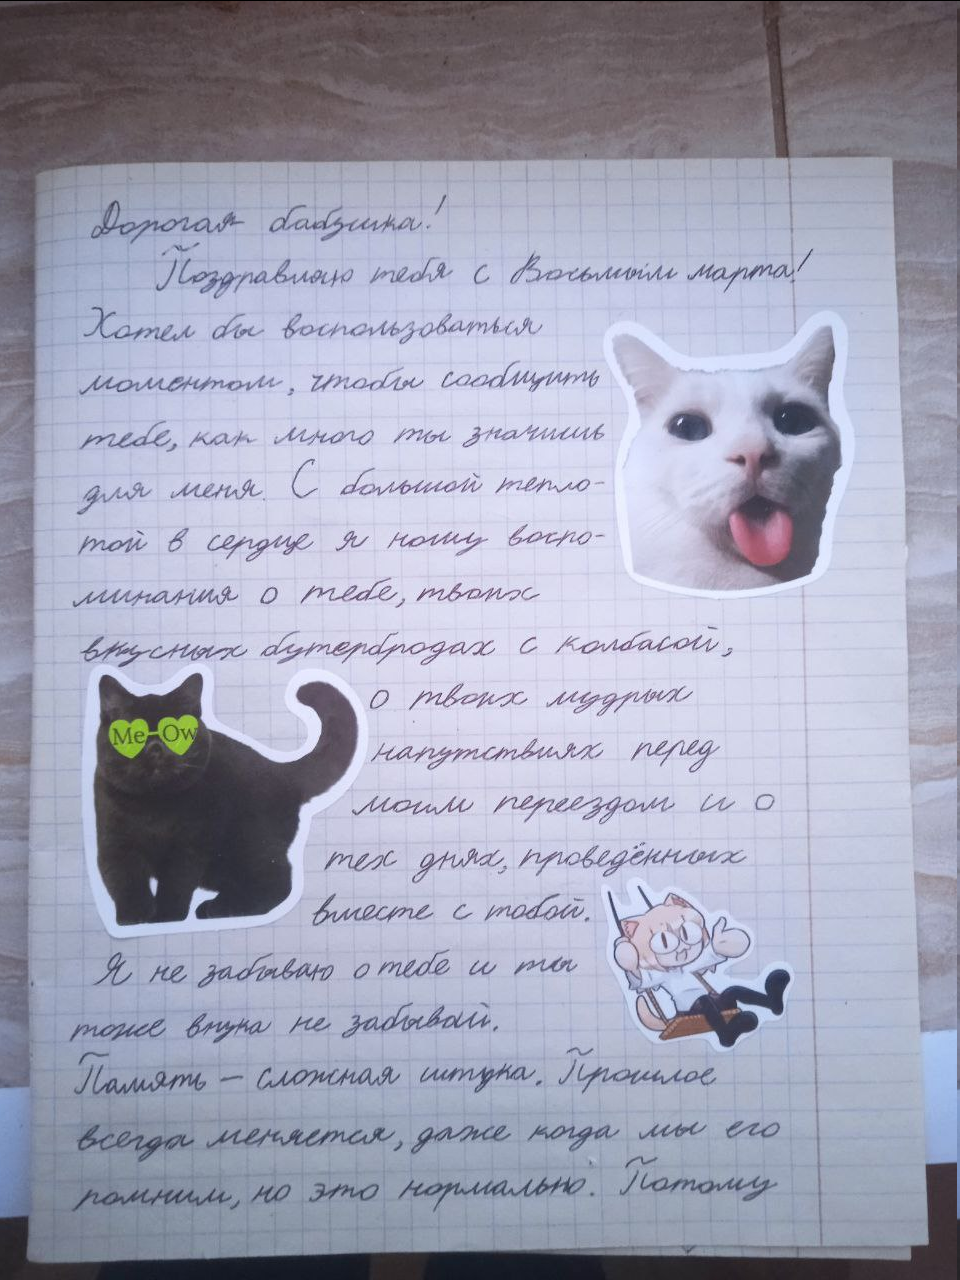 Дорогая бабушка!
Поздравляю тебя с Восьмым марта!
Хотел бы воспользоваться
моментом, чтобы сообщить
тебе, как много ты значишь
для меня. С большой тепло-
той в сердце я ношу воспо-
минания о тебе, твоих
вкусных бутербродах с колбасой,
о твоих мудрых
Me-Ow
напутствиях перед
моим переездом и о
тех днях, проведённых
вместе с тобой.
Я не забываю о тебе и ты
тоже внука не забывай.
Память – сложная штука. Прошлое
всегда меняется, даже когда мы его
помним, но это нормально. Потому